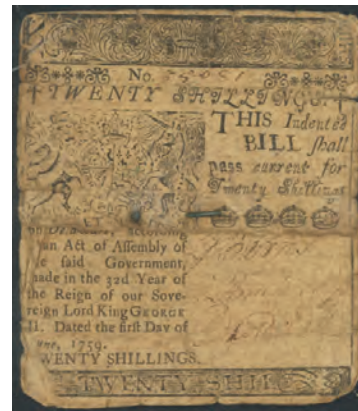 No. 
TWENTY SHILLINGS.
THIS Indented
BILL shall
pass current for
Twenty Shillings
according
an Act of Assembly of
said Government,
made in the 32d Year of
the Reign of our Sove-
reign Lord King GEORGE
II. Dated the first Day of
June, 1759.
TWENTY SHILLINGS.
TWENTY SHIL